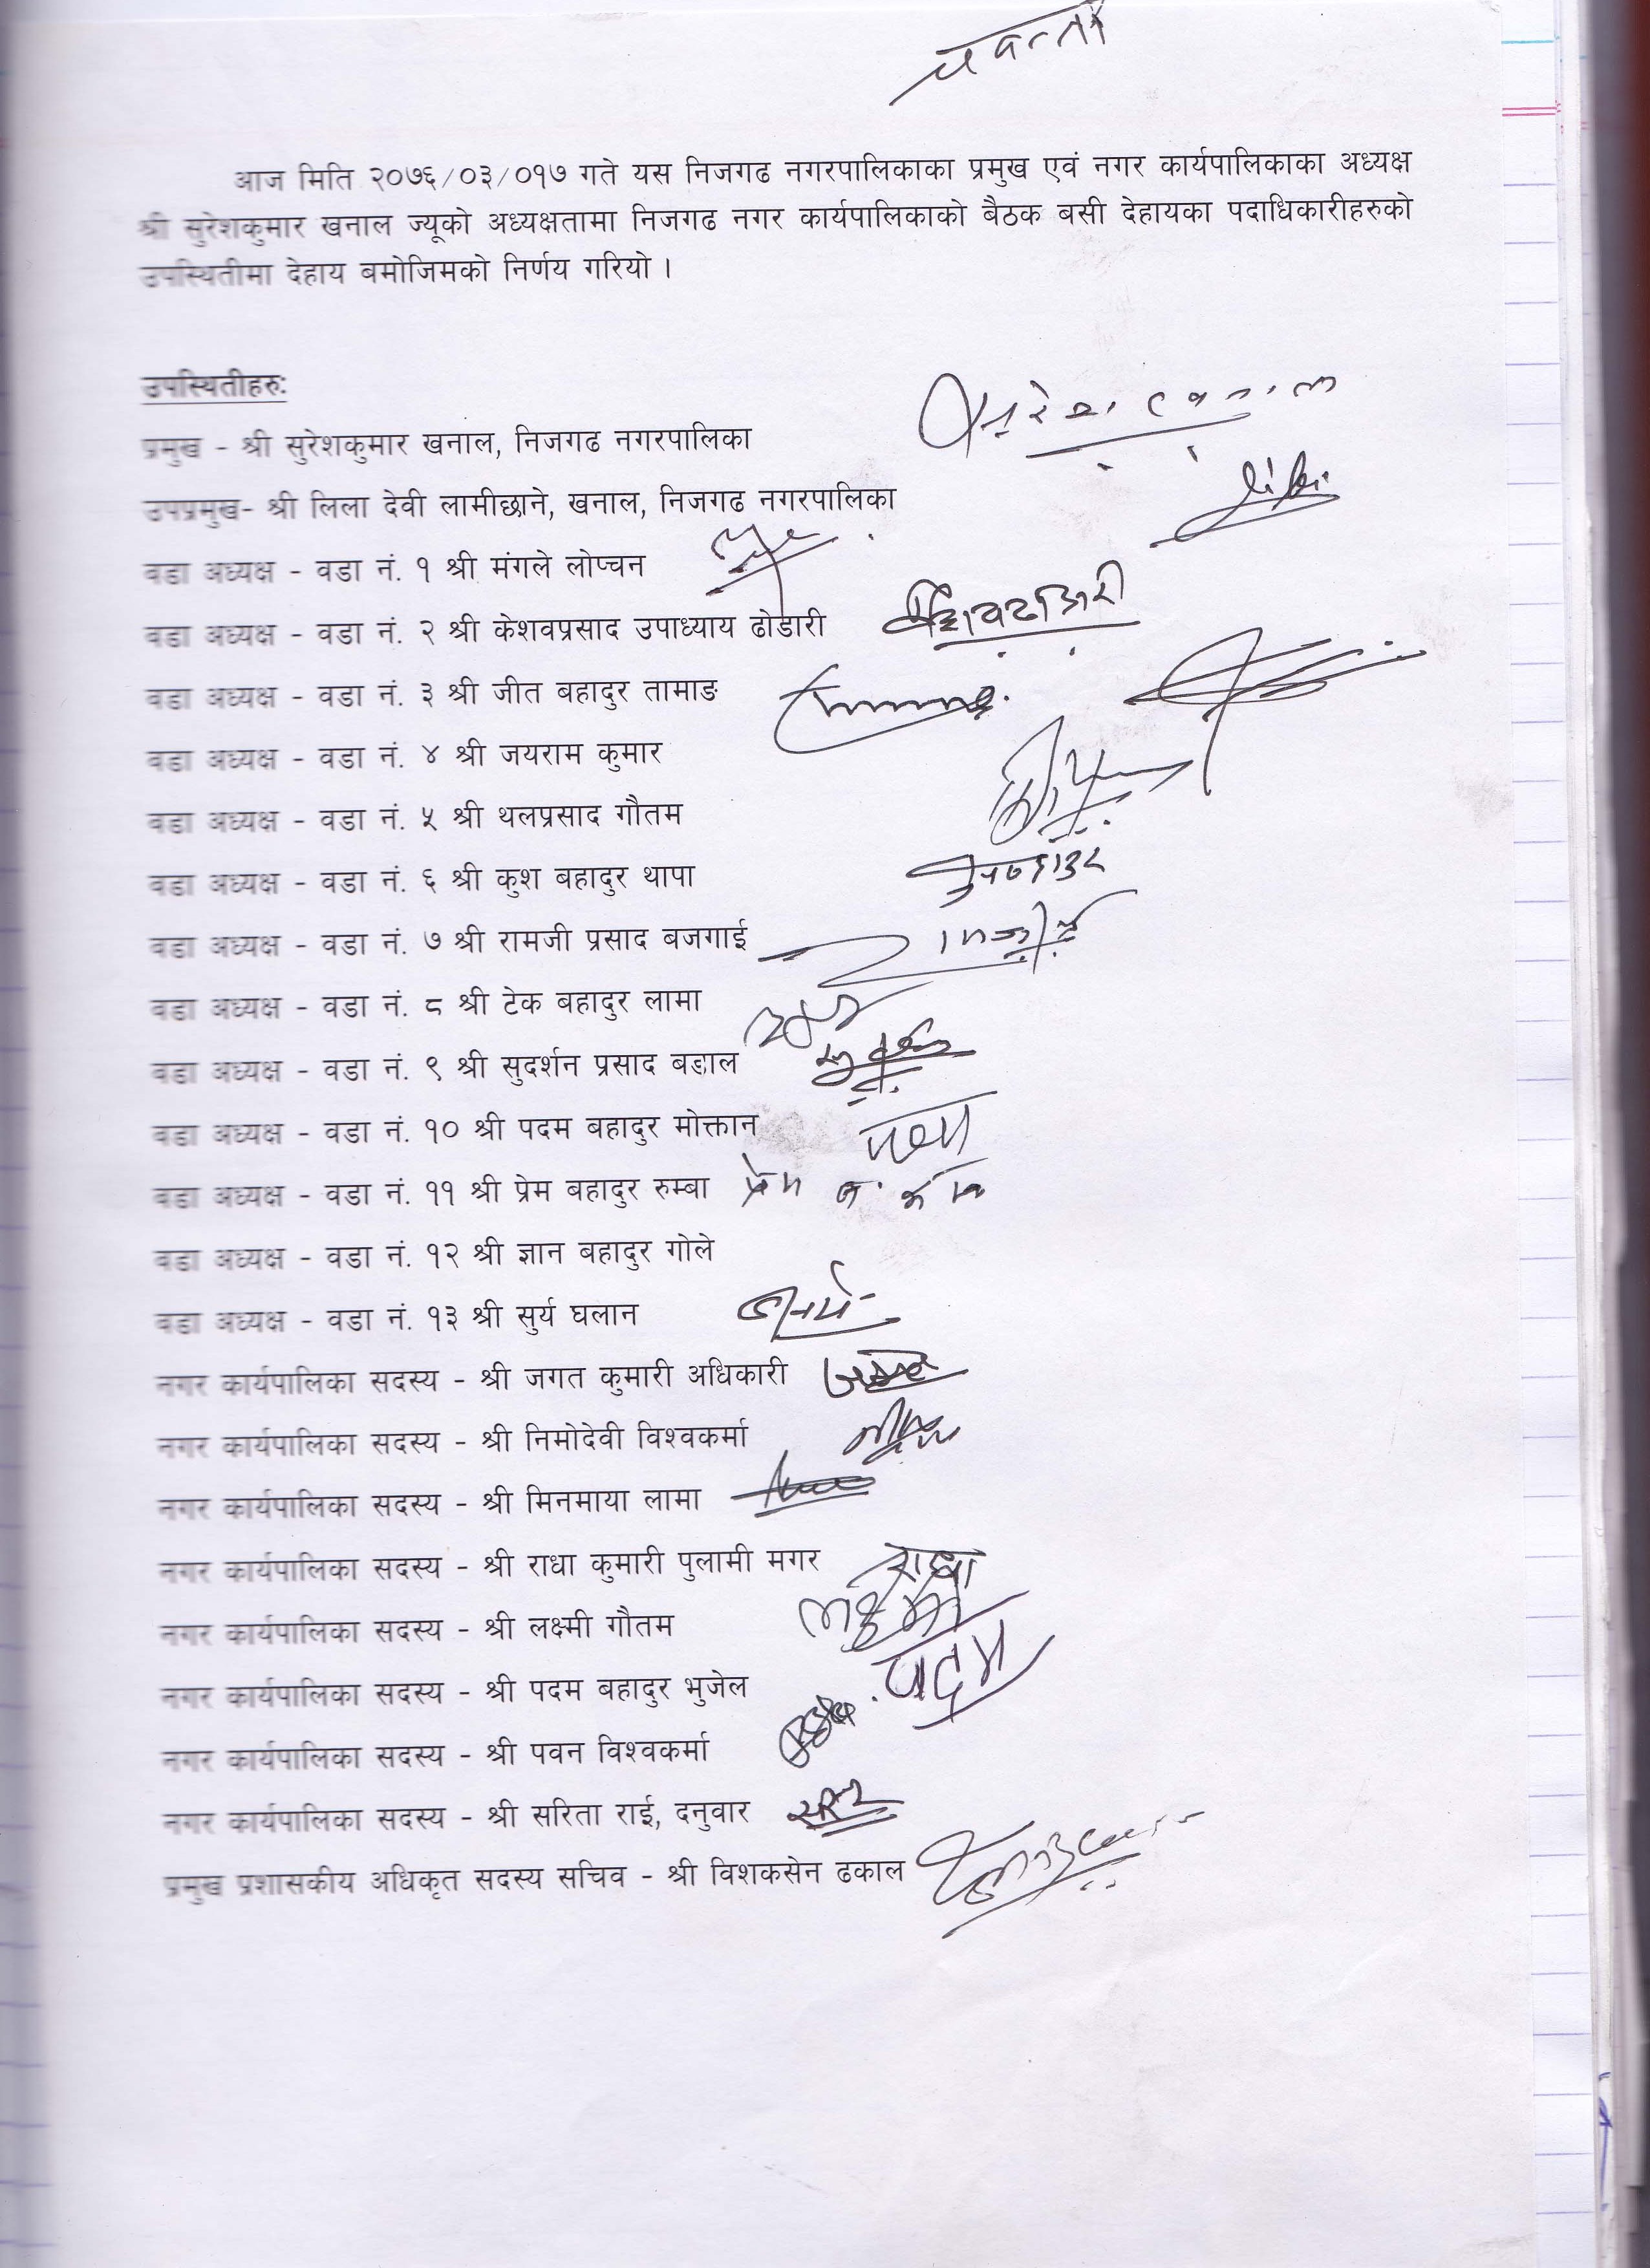 आज मिति २०७६/०३/०१७ गते यस निजगढ नगरपालिकाका प्रमुख एवं नगर कार्यपालिकाका अध्यक्ष
श्री सुरेशकुमार खनाल ज्यूको अध्यक्षतामा निजगढ नगर कार्यपालिकाको बैठक बसी देहायका पदाधिकारीहरुको
उपस्थितीमा देहाय बमोजिमको निर्णय गरियो ।
उपस्थितीहरुः
प्रमुख - श्री सुरेशकुमार खनाल, निजगढ नगरपालिका
उपप्रमुख- श्री लिला देवी लामीछाने, खनाल, निजगढ नगरपालिका
वडा अध्यक्ष - वडा नं. १ श्री मंगले लोप्चन
वडा अध्यक्ष - वडा नं. २ श्री केशवप्रसाद उपाध्याय ढोडारी
वडा अध्यक्ष - वडा नं. ३ श्री जीत बहादुर तामाङ
वडा अध्यक्ष - वडा नं. ४ श्री जयराम कुमार
वडा अध्यक्ष - वडा नं. ५ श्री थलप्रसाद गौतम
वडा अध्यक्ष - वडा नं. ६ श्री कुश बहादुर थापा
वडा अध्यक्ष - वडा नं. ७ श्री रामजी प्रसाद बजगाई
वडा अध्यक्ष - वडा नं. ८ श्री टेक बहादुर लामा
वडा अध्यक्ष - वडा नं. ९ श्री सुदर्शन प्रसाद बडाल
वडा अध्यक्ष - वडा नं. १० श्री पदम बहादुर मोक्तान
वडा अध्यक्ष - वडा नं. ११ श्री प्रेम बहादुर रुम्बा प्रेम ब.
वडा अध्यक्ष - वडा नं. १२ श्री ज्ञान बहादुर गोले
वडा अध्यक्ष - वडा नं. १३ श्री सुर्य घलान
नगर कार्यपालिका सदस्य - श्री जगत कुमारी अधिकारी
नगर कार्यपालिका सदस्य - श्री निमोदेवी विश्वकर्मा
नगर कार्यपालिका सदस्य - श्री मिनमाया लामा
नगर कार्यपालिका सदस्य - श्री राधा कुमारी पुलामी मगर राधा
नगर कार्यपालिका सदस्य - श्री लक्ष्मी गौतम लक्ष्मी
नगर कार्यपालिका सदस्य - श्री पदम बहादुर भुजेल पदम
नगर कार्यपालिका सदस्य - श्री पवन विश्वकर्मा
नगर कार्यपालिका सदस्य - श्री सरिता राई, दनुवार
प्रमुख प्रशासकीय अधिकृत सदस्य सचिव - श्री विशकसेन ढकाल